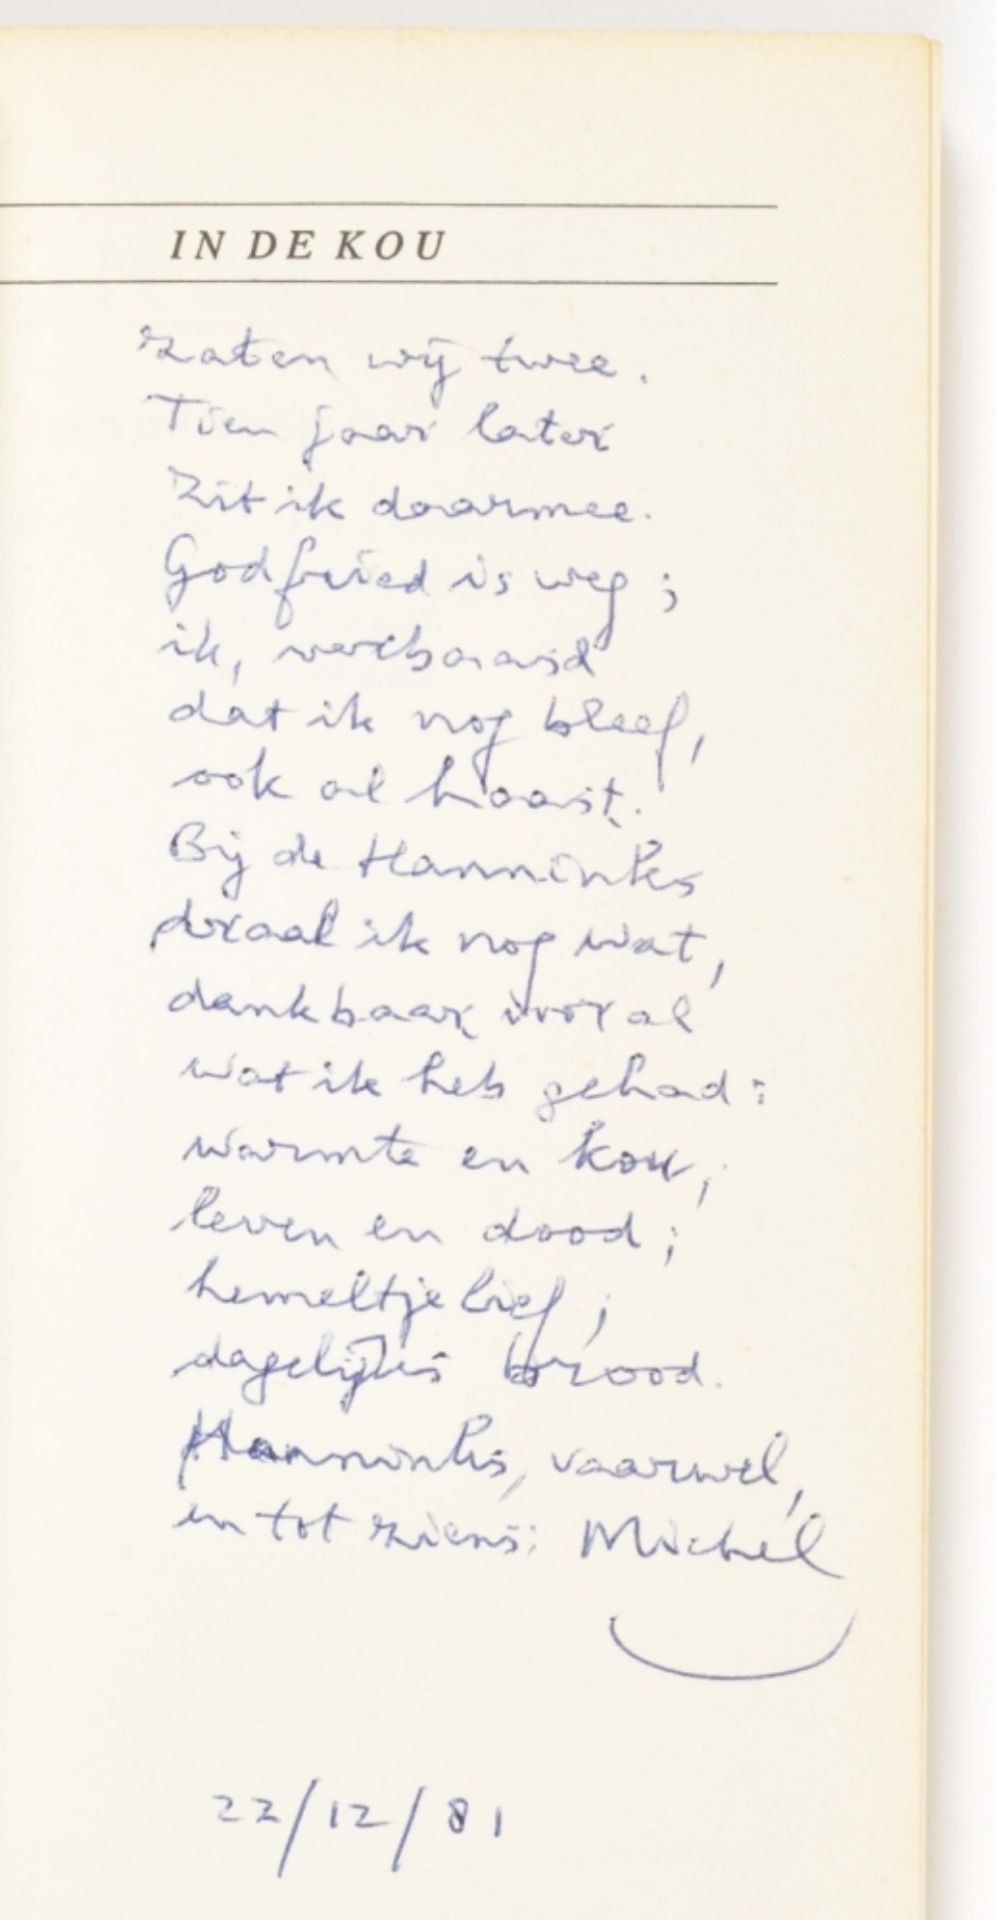 IN DE KOU
zaten wij twee.
Tien jaar later
Zit ik daarmee.
Godfried is weg;
ik, verbaasd
dat ik nog bleef,
ook al haast.
Bij de Hanninks
draal ik nog wat,
dankbaar voor al
wat ik heb gehad:
warmte en kou,
leven en dood;
hemeltje lief;
dagelijks brood.
Hanninks, vaarwel,
en tot ziens: Michel
22/12/81